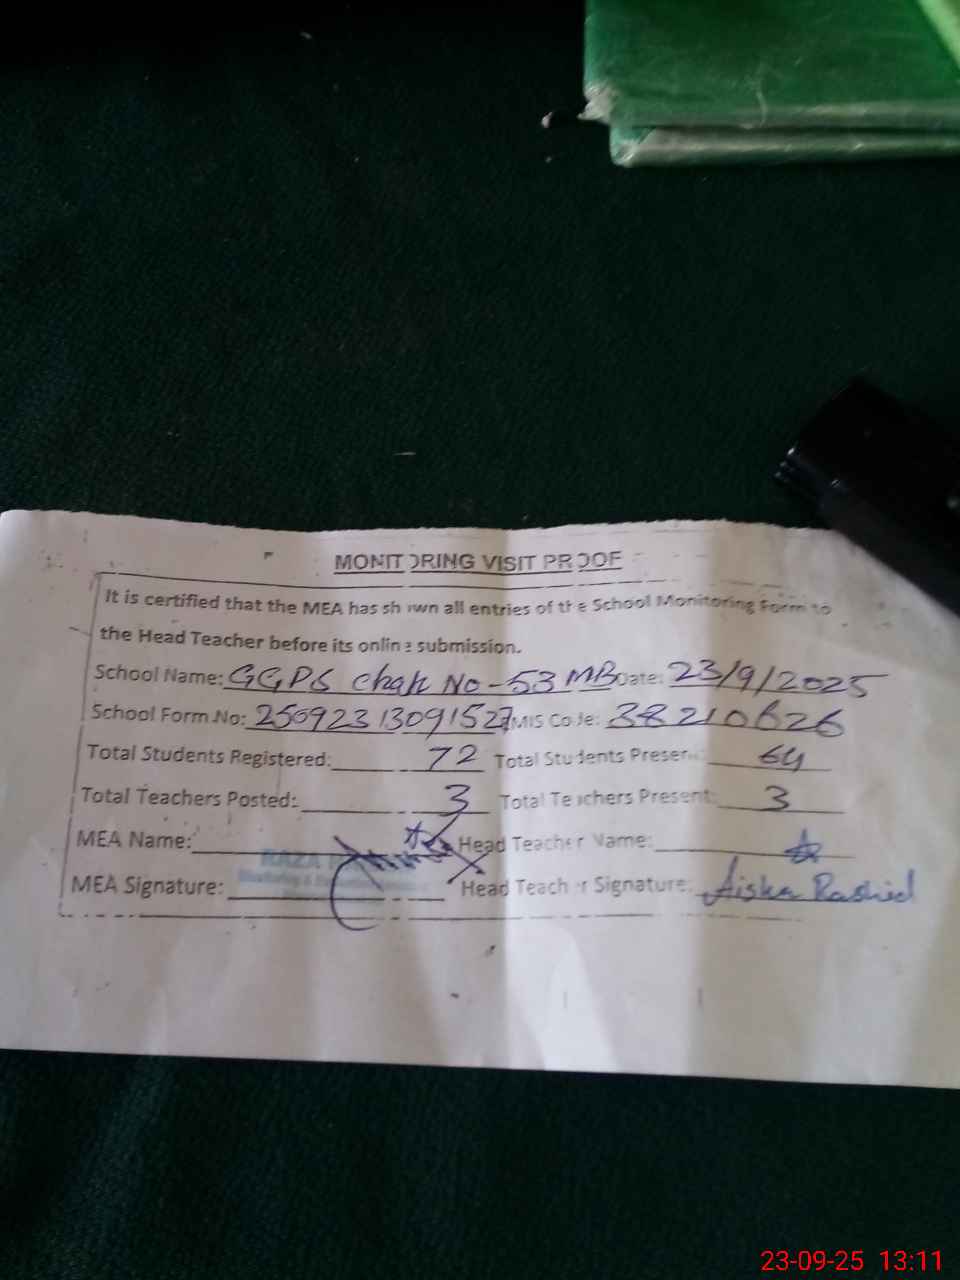 MONITORING VISIT PROOF
It is certified that the MEA has shown all entries of the School Monitoring Form to
the Head Teacher before its online submission.
School Name: GGPS Chak No-53 MB Date: 23/9/2025
School Form No: 25092313091527 EMIS Code: 38210626
Total Students Registered: 72 Total Students Present: 64
Total Teachers Posted: 3 Total Teachers Present: 3
MEA Name: Head Teacher Name:
RAZA
MEA Signature: Head Teacher Signature: Aisha Rashid
23-09-25 13:11